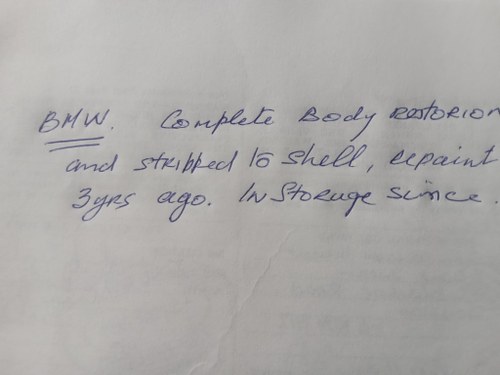 BMW. Complete Body restorion
and stripped to shell, repaint
3yrs ago. In Storage since.